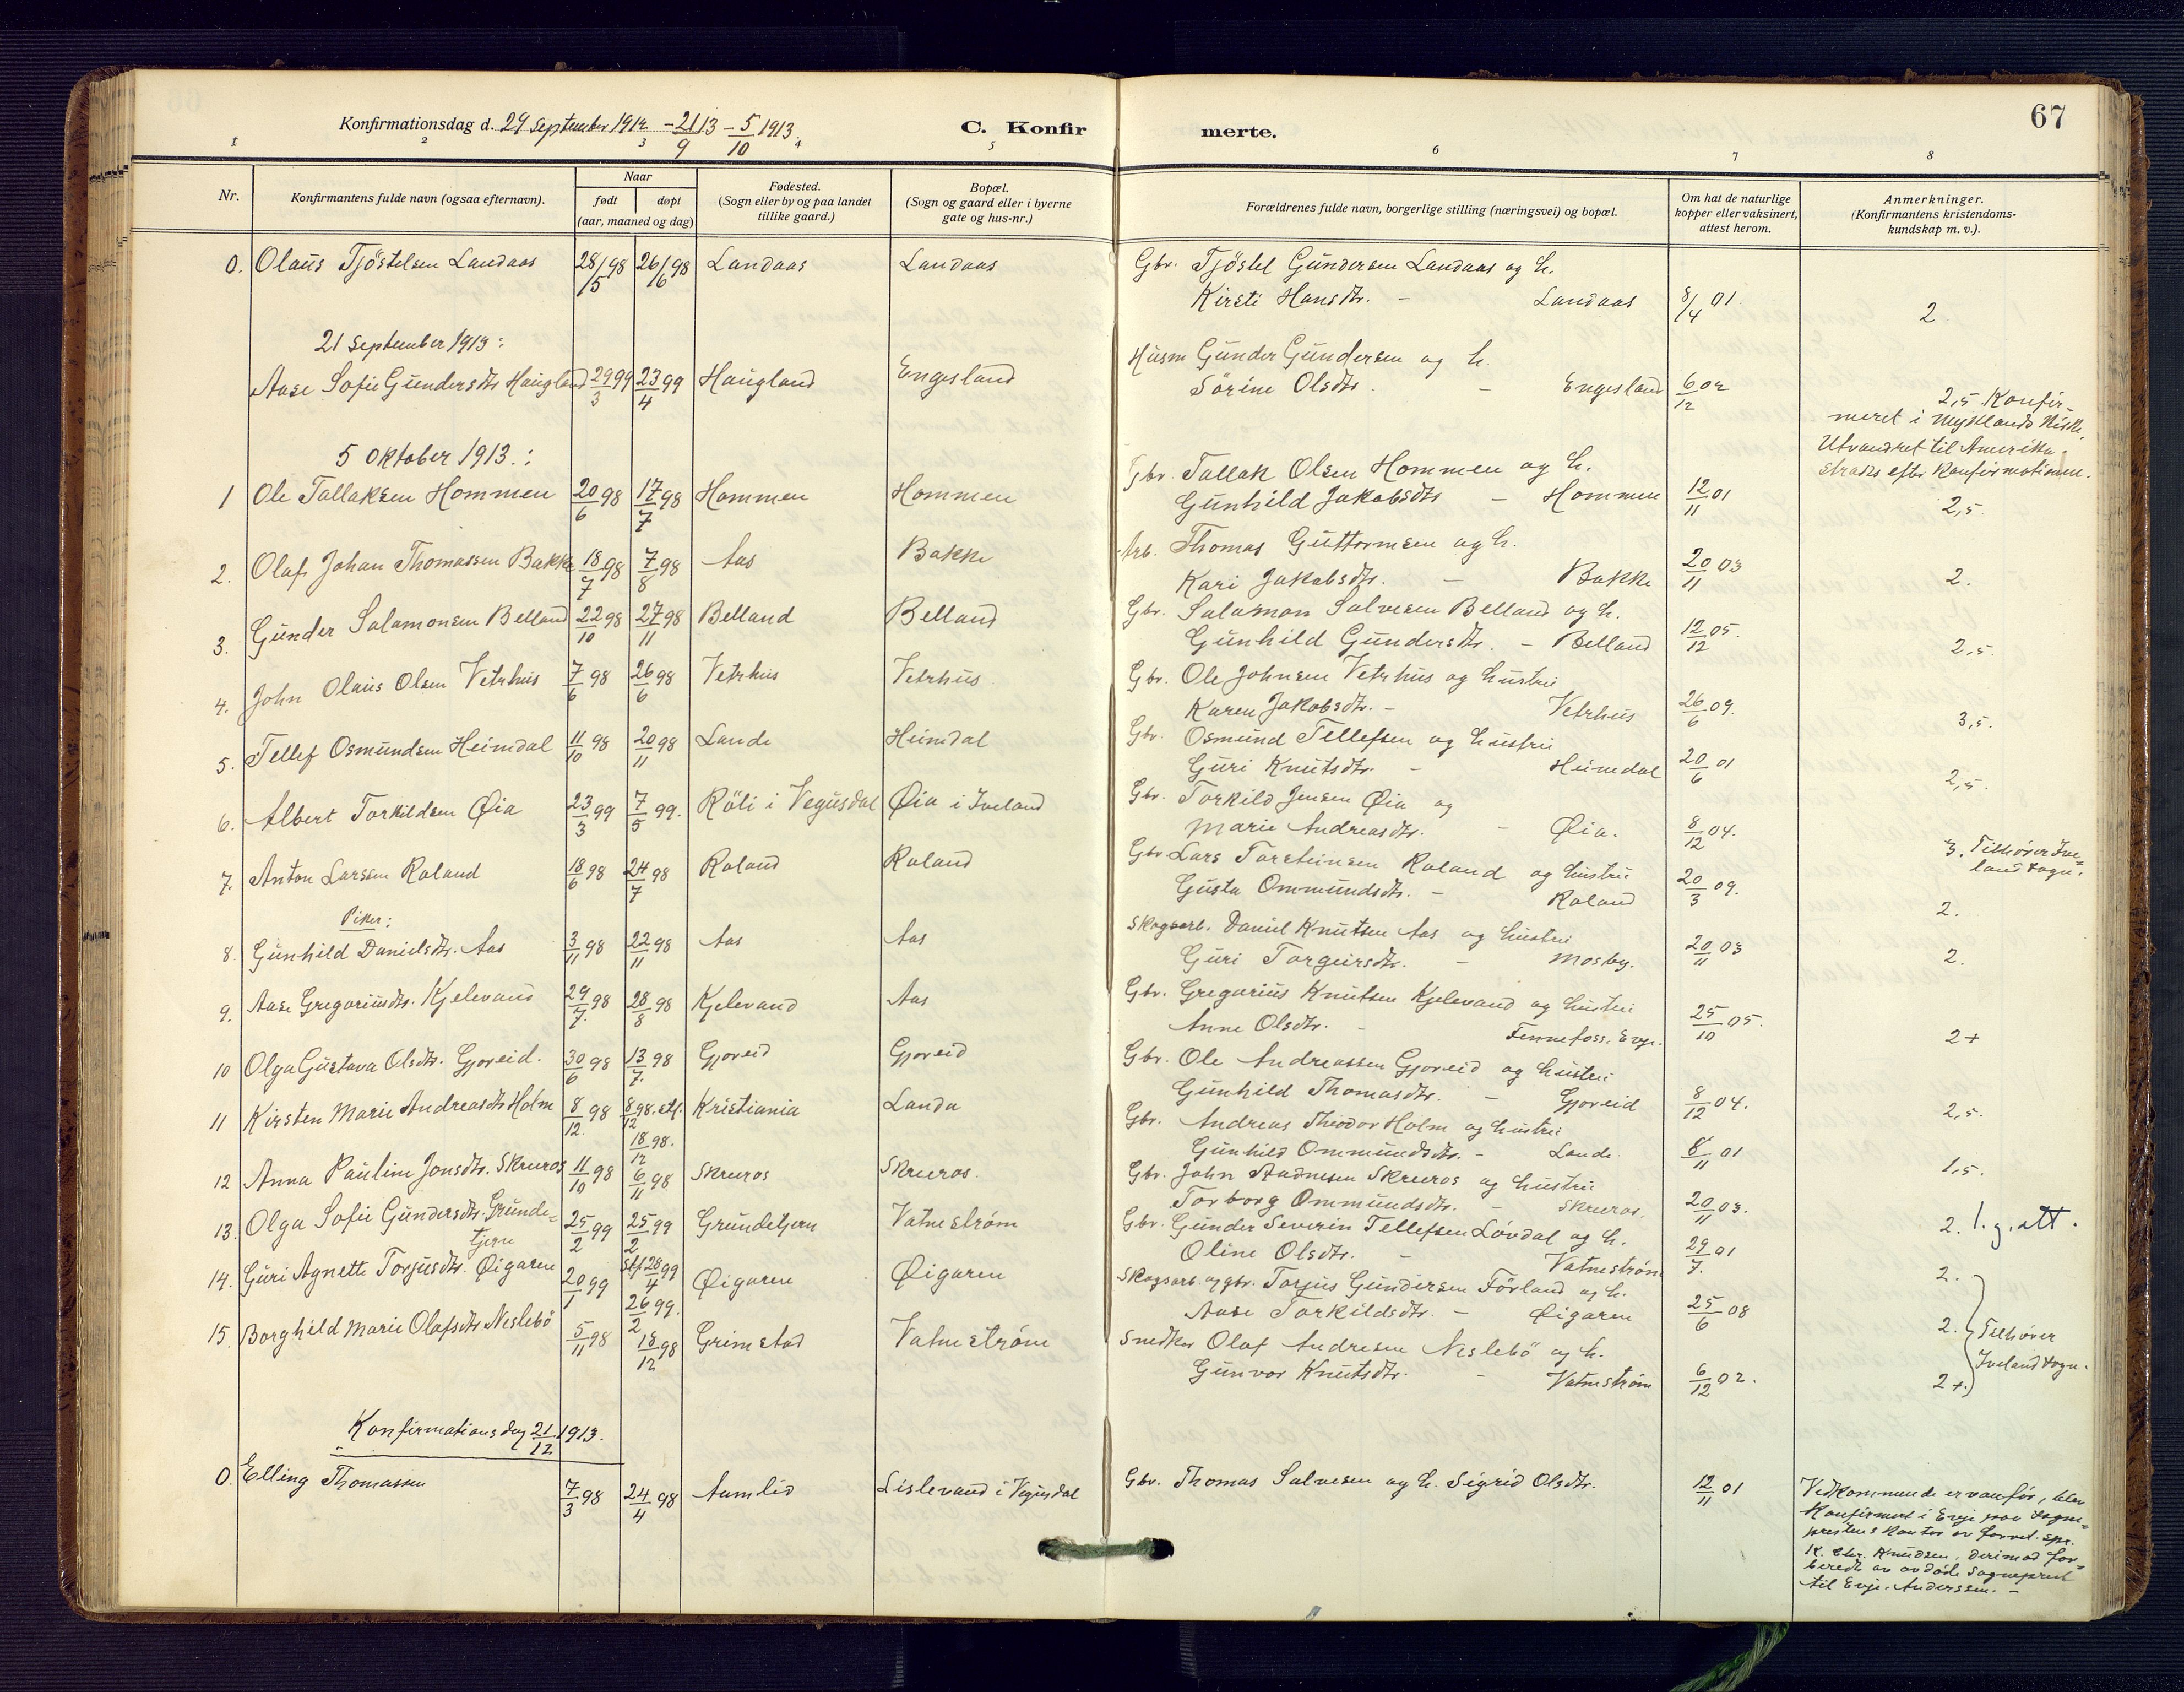 67
Konfirmationsdag d. 29 September 1912 - 21/9 13 - 5/10 1913.
C. Konfirmerte.
1 2 3 4 5 6 7 8
Nr. Konfirmantens fulde navn (ogsaa efternavn). Naar født døpt (aar, maaned og dag) Fødested. (Sogn eller by og paa landet tillike gaard.) Bopæl. (Sogn og gaard eller i byerne gate og hus-nr.) Forældrenes fulde navn, borgerlige stilling (næringsvei) og bopæl. Om hat de naturlige kopper eller vaksinert, attest herom. Anmerkninger. (Konfirmantens kristendomskundskap m. v.).
0. Olaus Tjöstelsen Landaas 28/5 98 26/6 98 Landaas Landaas Gbr. Tjöstel Gundersen Landaas og h.
Kirsti Hansdtr. - Landaas 8/4 01. 2
21 September 1913:
Aase Sofie Gundersdtr Haugland 29/3 99 23/4 99 Haugland Engesland Husm Gunder Gundersen og h.
Sörine Olsdtr. - Engesland 6/12 02 2,5. Konfirmeret i Myklands Kirke. Utvandret til Amerika straks efter Konfirmationen.
5 Oktober 1913.:
1 Ole Tallaksen Hommen 20/6 98 17/7 98 Hommen Hommen Gbr. Tallak Olsen Hommen og h.
Gunhild Jakobsdtr - Hommen 12/11 01 2,5.
2. Olaf Johan Thomassen Bakke 18/7 98 7/8 98 Aas Bakke Arb. Thomas Guttormsen og h.
Kari Jakobsdtr. - Bakke 20/11 03 2.
3. Gunder Salamonsen Belland 22/10 98 27/11 98 Belland Belland Gbr. Salamon Salvesen Belland og h.
Gunhild Gundersdtr. - Belland 12/12 05. 2,5.
4. John Olaus Olsen Vetrhus 7/6 98 26/6 98 Vetrhus Vetrhus Gbr. Ole Johnsen Vetrhus og hustru
Karen Jakobsdtr. - Vetrhus 26/6 09. 3,5.
5. Tellef Osmundsen Heimdal 11/10 98 20/11 98 Lande Heimdal Gbr. Osmund Tellefsen og hustru
Guri Knutsdtr. - Heimdal 20/6 01 2,5.
6. Albert Torkildsen Øia 23/3 99 7/5 99. Röli i Vegusdal Øia i Iveland Gbr. Torkild Jensen Øia og
Marie Andreasdtr. - Øia. 8/12 04. 3. Tilhører Iveland sogn.
7. Anton Larssen Roland 18/6 98 24/7 98 Roland Roland Gbr Lars Torsteinsen Roland og hustru
Gusta Ommundsdtr. - Roland 20/3 09. 2.
Piker:
8. Gunhild Danielsdtr. Aas 3/11 98 22/11 98 Aas Aas Skogsarb. Daniel Knutsen Aas og hustru
Guri Torgeirsdtr. - Mosby. 20/11 03 2.
9. Aase Gregoriusdtr. Kjelevand 29/7. 98 28/8 98 Kjelevand Aas Gbr. Gregorius Knutsen Kjelevand og hustru
Anne Olsdtr. - Fennefoss, Evje. 25/10 05. 2+
10 Olga Gustava Olsdtr. Gjoreid. 30/6 98 13/7. 98 Gjoreid Gjoreid Gbr. Ole Andreassen Gjoreid og hustru
Gunhild Thomasdtr. - Gjoreid 8/12 04. 2,5.
11 Kirsten Marie Andreasdtr Holm 8/12. 98 8/12 98. stf. 18/12 98. Kristiania Landa Gbr. Andreas Theodor Holm og hustru
Gunhild Ommundsdtr. - Lande. 8/11 01 1,5.
12 Anna Pauline Jonsdtr. Skreros 11/10 98 6/11 98 Skreros Skreros. Gbr. John Aadnesen Skreros og hustru
Torborg Ommundsdtr. - Skreros. 20/11 03. 2. 1. g. att.
13. Olga Sofie Gundersdtr. Grundetjern 25/2 99 25/2 99 stf 28/4 99 Grundetjern Vatneström Gbr. Gunder Severin Tellefsen Lövdal og h.
Oline Olsdtr. - Vatneström 29/7. 01 2.
14. Guri Agnette Torjusdtr. Øigaren 20/1 99 26/2 99. Øigaren Øigaren Skogsarb. og gbr. Torjus Gundersen Förland og h.
Aase Torkildsdtr. - Øigaren 25/6 08 2. Tilhører Iveland sogn.
15. Borghild Marie Olafsdtr Neslebö 5/11 98 18/12 98 Grimstad Vatneström Snedker Olaf Andresen Neslebö og h.
Gunvor Knutsdtr. - Vatneström 6/12 02. 2+.
Konfirmationsdag 21/12 1913.
0. Elling Thomassen 7/3 98 24/4 98 Aamlid Lislevand i Vegusdal Gbr. Thomas Salvesen og h. Sigrid Olsdtr. 12/11 01 Vedkommende er vanfør, blev
Konfirmert i Evje paa sogneprestens Kontor av forvet. spr.
K. Chr. Knudsen, derimod forberedt av avdöde sogneprest
til Evje. Anderssen. -